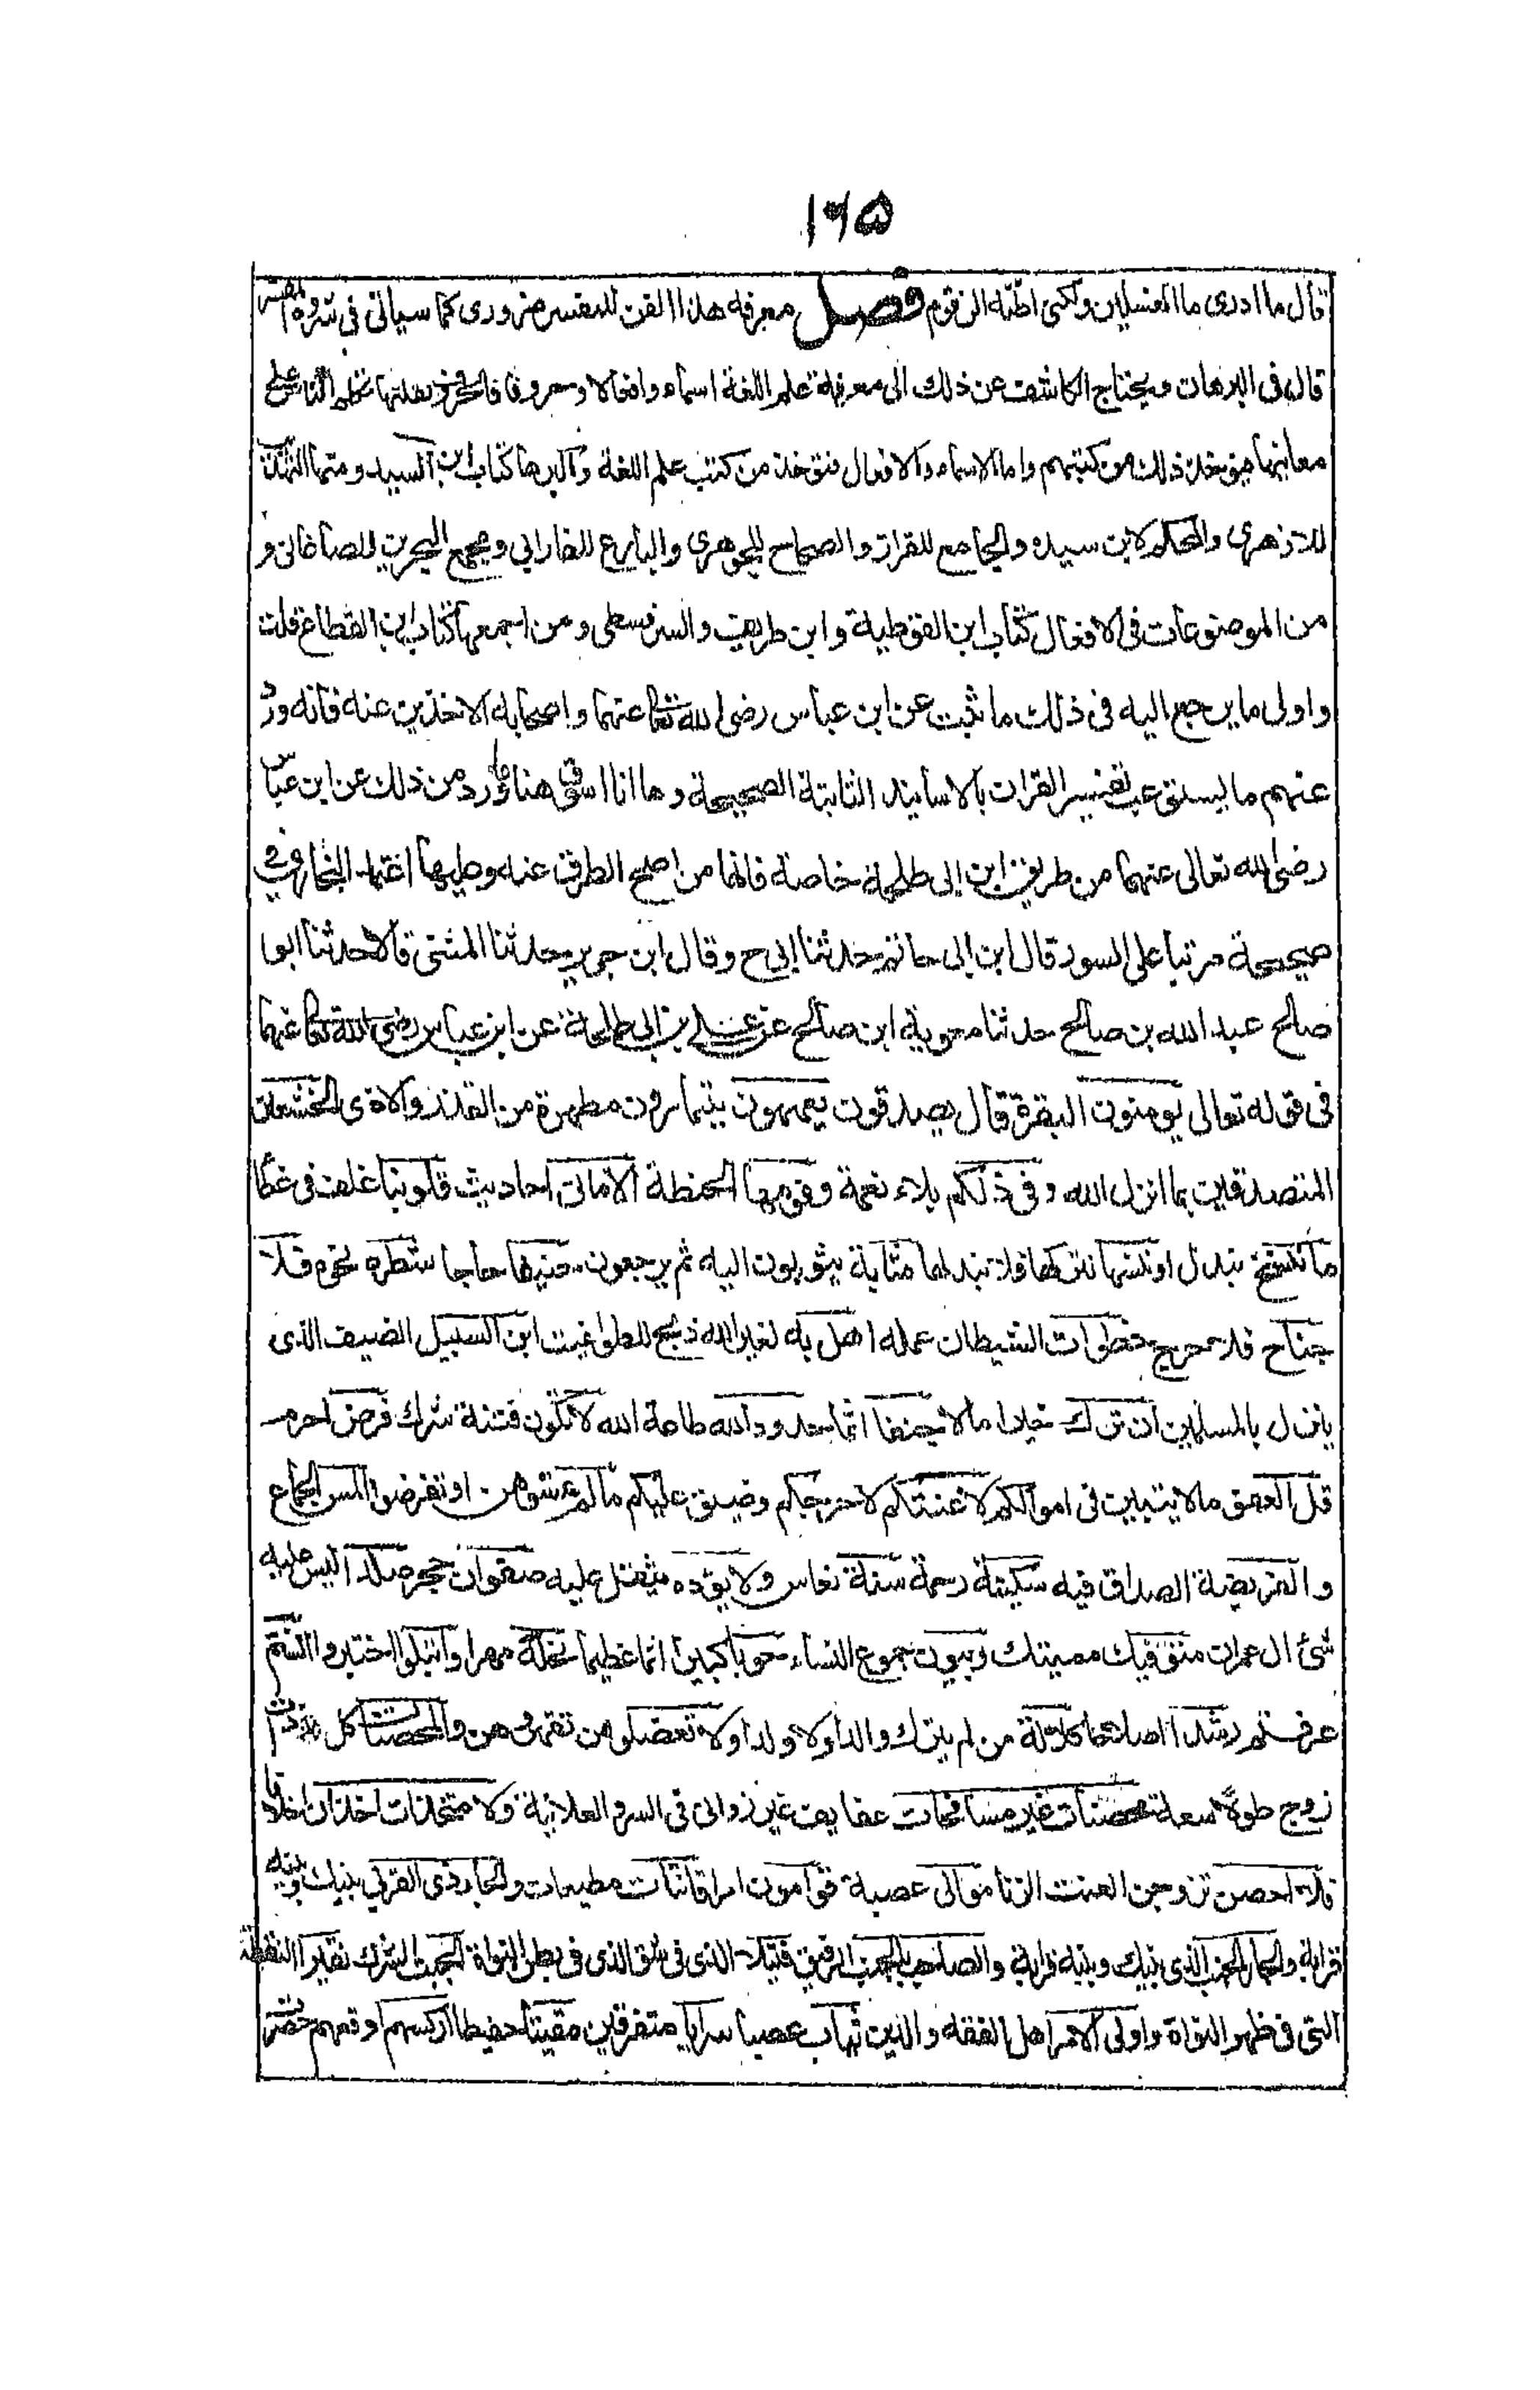 ١٦٥
قال ما ادرى ما الغسلين ولكنى اظنه الزقوم فصل معرفة هذا الفن للمفسر ضرورى كما سياتى فى شروط المفسر
قال فى البرهان ويحتاج الكاشف عن ذلك الى معرفة علم اللغة اسماء وافعالا وحروفا فالحروف لقلتها تكلم النحاة على
معانيها فيؤخذ ذلك من كتبهم واما الاسماء والافعال فتؤخذ من كتب علم اللغة واكبرها كتاب ابن السيد ومنها التهذيب
للازهرى والمحكم لابن سيده والجامع للقزاز والصحاح للجوهرى والبارع للفارابى ومجمع البحرين للصاغانى و
من الموضوعات فى الافعال كتاب ابن القوطية وابن طريف والسرقسطى ومن اجمعها كتاب ابن القطاع قلت
واولى ما يرجع اليه فى ذلك ما ثبت عن ابن عباس رضى الله تعالى عنهما واصحابه الاخذين عنه فانه ورد
عنهم ما يستوعب تفسير القران بالاسانيد الثابتة الصحيحة وها انا اسوق هنا ما ورد من ذلك عن ابن عباس
رضى الله تعالى عنهما من طريق ابن ابى طلحة خاصة فانها من اصح الطرق عنه وعليها اعتمد البخارى فى
صحيحه مرتبا على السور قال ابن ابى حاتم حدثنا ابى ح وقال ابن جرير حدثنا المثنى قالا حدثنا ابو
صالح عبد الله بن صالح حدثنا معوية ابن صالح عن على بن ابى طلحة عن ابن عباس رضى الله تعالى عنهما
فى قوله تعالى يومنون البقرة قال يصدقون يعمهون يتمارون مطهرة من القذر والاذى الخاشعين
المتصدقين بما انزل الله وفى ذلكم بلاء نعمة وفومها الحنطة الامانى احاديث قلوبنا غلف فى غطاء
ما ننسخ نبدل او ننسها نتركها فلا نبدلها مثابة يثوبون اليه ثم يرجعون حنيفا حاجا شطره نحوه فلا
جناح فلا حرج خطوات الشيطان عمله اهل به لغير الله ذبح للطواغيت ابن السبيل الضيف الذى
ينزل بالمسلمين ان ترك خيرا مالا جنفا اثما حدود الله طاعة الله لا تكون فتنة شرك فرض احرم
قل العفو ما لا يتبين فى اموالكم لاعنتكم لاحرجكم وضيق عليكم ما لم تمسوهن او تفرضوا المس الجماع
والفريضة الصداق فيه سكينة رحمة سنة نعاس ولا يؤده يثقل عليه صفوان حجر صلدا ليس عليه
شئ ال عمران متوفيك مميتك ربيون جموع النساء حوبا كبيرا اثما عظيما نحلة مهرا وابتلوا اختبروا انستم
عرفتم رشدا اصلاحا كلالة من لم يترك والدا ولا ولدا ولا تعضلوهن تقهروهن والمحصنات كل ذات
زوج طولا سعة محصنات غير مسافحات عفايف غير زوانى فى السر والعلانية ولا متخذات اخدان اخلاء
فاذا احصن تزوجن العنت الزنا موالى عصبة قوامون امرا قانتات مطيعات والجار ذى القربى بينك وبينه
قرابة والجار الجنب الذى بينك وبينه قرابة والصاحب بالجنب الرفيق فتيلا الذى فى شق الذى فى بطن النواة الجبت الشرك نقيرا النقطة
التى فى ظهر النواة واولى الامر اهل الفقه والدين ثبات عصبا سرايا متفرقين مقيتا حفيظا اركسهم اوقعهم حصرت